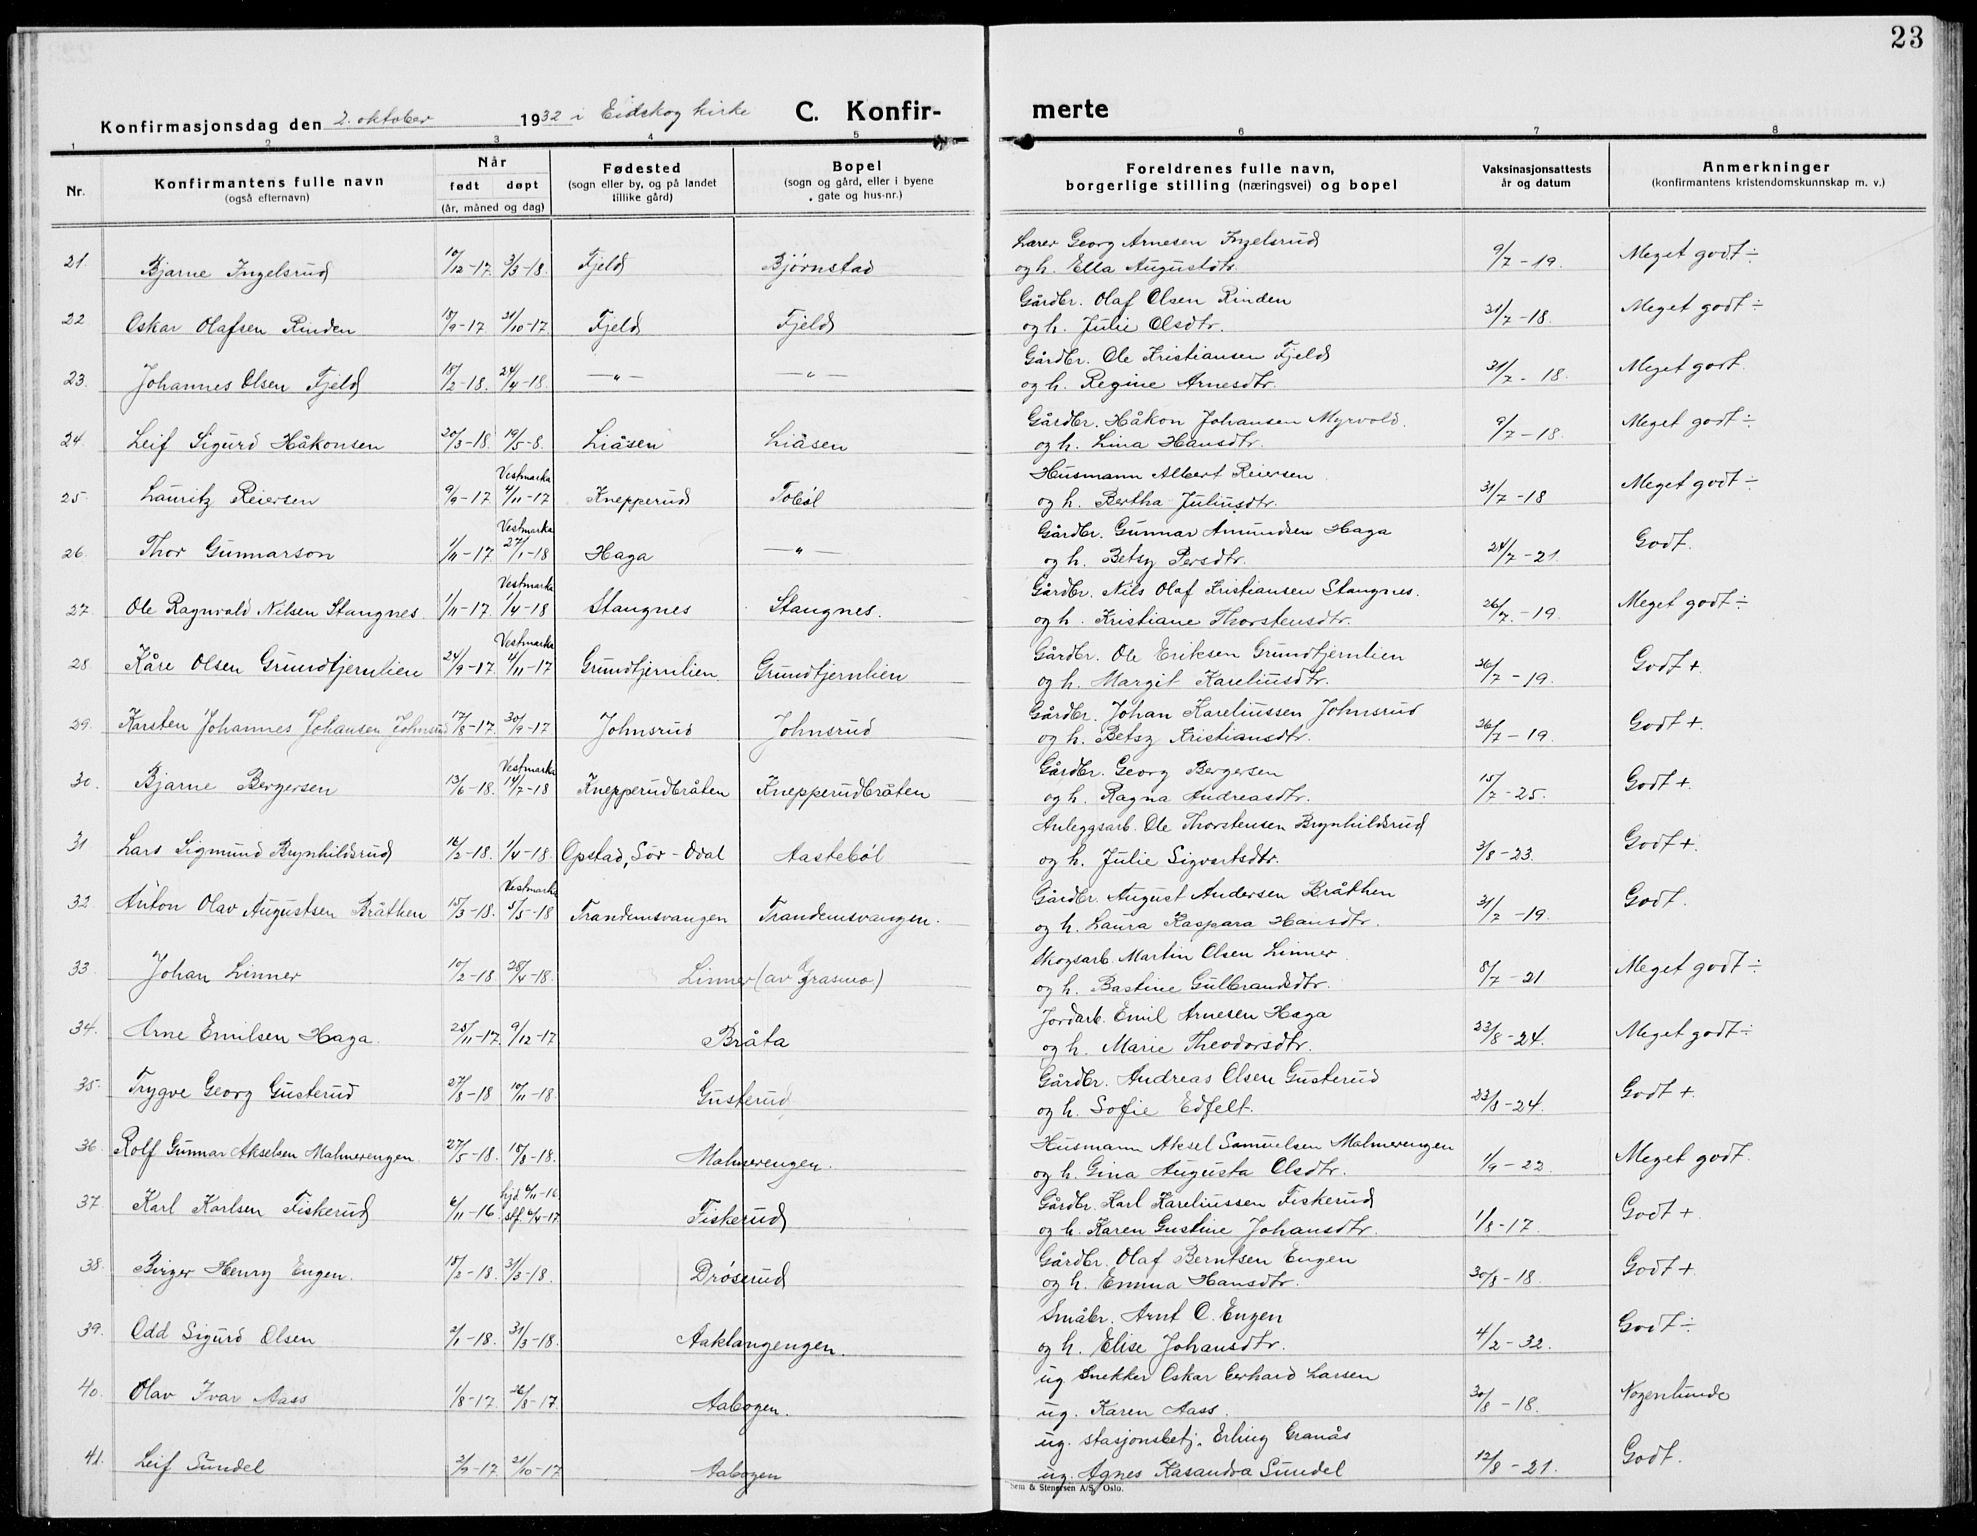 23
Konfirmasjonsdag den 2. oktober 1932 i Eidskog kirke C. Konfir- merte
1 2 3 4 5 6 7 8
Nr.
Konfirmantens fulle navn
(også efternavn)
Når
født døpt
(år, måned og dag)
Fødested
(sogn eller by, og på landet
tillike gård)
Bopel
(sogn og gård, eller i byene
gate og hus-nr.)
Foreldrenes fulle navn,
borgerlige stilling (næringsvei) og bopel
Vaksinasjonsattests
år og datum
Anmerkninger
(konfirmantens kristendomskunnskap m. v.)
21. Bjarne Ingelsrud 10/12-17. 3/3-18. Fjeld Bjørnstad Lærer Georg Arnesen Ingelsrud 9/7-19. Meget godt ÷
og h. Ella Augustdtr.
22 Oskar Olafsen Rinden 18/9-17 21/10-17. Fjeld Fjeld Gårdbr. Olaf Olsen Rinden 31/7-18. Meget godt ÷
og h. Julie Olsdtr.
23. Johannes Olsen Fjeld 18/2-18. 24/4-18. —„— —„— Gårdbr. Ole Kristiansen Fjeld 31/7-18. Meget godt.
og h. Regine Arnesdtr.
24. Leif Sigurd Håkonsen 20/3-18. 19/5-8. Liåsen Liåsen Gårdbr. Håkon Johansen Myrvold. 9/7-18. Meget godt ÷
og h. Lina Hansdtr.
25. Lauritz Reiersen 9/9-17 Vestmarka 4/11-17 Knepperud Tobøl Husmann Albert Reiersen 31/7-18 Meget godt ÷
og h. Bertha Juliusdtr.
26. Thor Gunnarson 1/11-17. Vestmarka 27/1-18 Haga —„— Gårdbr. Gunnar Amundsen Haga 24/7-21. Godt.
og h. Betsy Persdtr.
27. Ole Ragnvald Nilsen Stangnes. 1/11-17. Vestmarka 1/4-18 Stangnes Stangnes. Gårdbr. Nils Olaf Kristiansen Stangnes. 26/7.-19. Meget godt ÷
og h. Kristiane Thorstensdtr.
28 Kåre Olsen Grundtjernlien 24/9-17. Vestmarka 4/11-17 Grundtjernlien. Grundtjernlien Gårdbr. Ole Eriksen Grundtjernlien 26/7-19. Godt +
og h. Margit Kareliusdtr.
29. Karsten Johannes Johansen Johnsrud 17/8-17. 30/9-17 Johnsrud Johnsrud Gårdbr. Johan Kareliussen Johnsrud 26/7-19. Godt +.
og h. Betsy Kristiansdtr.
30. Bjarne Bergersen 13/6-18. Vestmarka 14/7-18 Knepperudbråten Knepperudbråten Gårdbr. Georg Bergersen 15/7-25. Godt +
og h. Ragna Andreasdtr.
31 Lars Sigmund Brynhildsrud 16/2-18. 1/4-18. Opstad, Sør-Odal Aastebøl Anleggsarb. Ole Thorstensen Brynhildsrud 3/8-23. Godt +.
og h. Julie Sigvartsdtr.
32 Anton Olav Augustsen Bråthen 15/3-18. Vestmarka 5/5-18 Trandemsvangen Trandemsvangen. Gårdbr. August Andersen Bråthen 31/7-19. Godt.
og h. Laura Kaspara Hansdtr.
33. Johan Linner 10/2-18 28/4-18. Linner (av Grasmo) Skogsarb. Martin Olsen Linner 8/7-21 Meget godt ÷
og h. Bastine Gulbrandsdtr.
34. Arne Emilsen Haga. 25/11-17. 9/12-17 Bråta Jordarb. Emil Arnesen Haga 23/8-24. Meget godt ÷
og h. Marie Theodorsdtr.
35. Trygve Georg Gusterud 27/8-18 10/11-18. Gusterud Gårdbr. Andreas Olsen Gusterud 23/8-24. Godt +
og h. Sofie Edfelt.
36. Rolf Gunnar Akselsen Malmerengen. 27/5-18. 18/8-18. Malmerengen. Husmann Aksel Samuelsen Malmerengen 1/9-22. Meget godt.
og h. Gina Augusta Olsdtr.
37. Karl Karlsen Fiskerud 6/11-16. hjd. 6/11-16. stf. 6/4-17. Fiskerud Gårdbr. Karl Kareliussen Fiskerud 1/8-17. Godt +
og h. Karen Gustine Johansdtr.
38. Birger Henry Engen. 15/2-18. 31/3-18. Drøserud Gårdbr. Olaf Berntsen Engen 30/8-18. Godt +
og h. Emma Hansdtr.
39. Odd Sigurd Olsen 2/1-18. 31/3-18. Aaklangengen. Småbr. Arnt O. Engen 4/2-32. Godt ÷
og h. Elise Johansdtr.
40. Olav Ivar Aass 1/8-17. 26/8-17. Aabogen. ug. Snekker Oskar Gerhard Larsen 30/8-18. Nogenlunde
ug. Karen Aass.
41. Leif Sundel 2/9-17. 21/10-17 Aabogen ug. stasjonsbetj. Erling Granås 12/8-21. Godt.
ug. Agnes Kasandra Sundel
Sem & Stenersen A/S, Oslo.